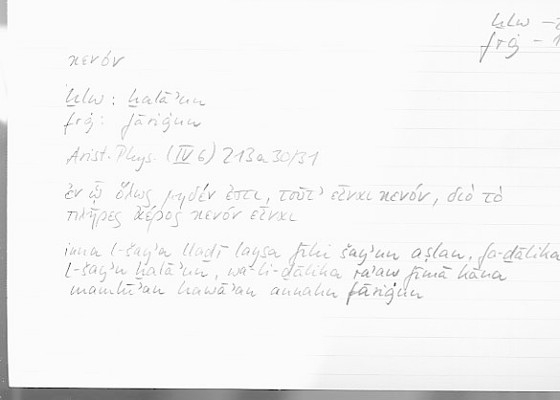 ḫlw –
frġ – 1
κενόν
ḫlw : ḫalāʾun
frġ : fāriġun
Arist. Phys. (IV 6) 213a30/31
ἐν ᾧ ὅλως μηδέν ἐστι, τοῦτ' εἶναι κενόν, διὸ τὸ
πλῆρες ἀέρος κενὸν εἶναι
inna l-šayʾa llaḏī laysa fīhi šayʾun aṣlan, fa-ḏālika
l-šayʾu ḫalāʾun, wa-li-ḏālika raʾaw fīmā kāna
mamlūʾan hawāʾan annahu fāriġun